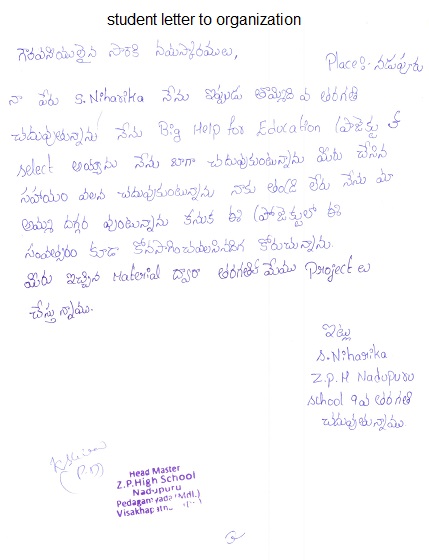 student letter to organization
గౌరవనీయులైన సార్‌కి నమస్కారములు,
Place :- నడుపూరు
నా పేరు S.Niharika నేను ఇప్పుడు తొమ్మిది వ తరగతి
చదువుతున్నాను నేను Big Help for Education ప్రాజెక్టు కి
select అయ్యాను నేను బాగా చదువుకుంటున్నాను మీరు చేసిన
సహాయం వలన చదువుకుంటున్నాను నాకు తండ్రి లేరు నేను మా
అమ్మ దగ్గర వుంటున్నాను కనుక ఈ ప్రాజెక్టులో ఈ
సంవత్సరం కూడా కోరుచున్నాను.
మీరు ఇచ్చిన Material ద్వారా తరగతిలో మేము Project లు
చేస్తున్నాము.
ఇట్లు
S.Niharika
Z.P.H Nadupuru
school 9వ తరగతి
చదువుతున్నాము.
Head Master
Z.P.High School
Nadupuru